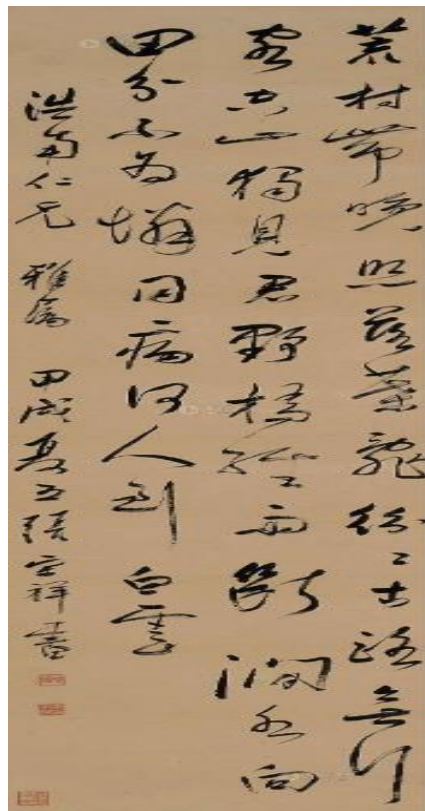 荒村帶晚照落葉亂紛〻古路無行
客空山獨見君野橋經雨斷澗水向
田分不為憐同病何人到白雲
仁兄 雅屬 甲戌夏五張宗祥書